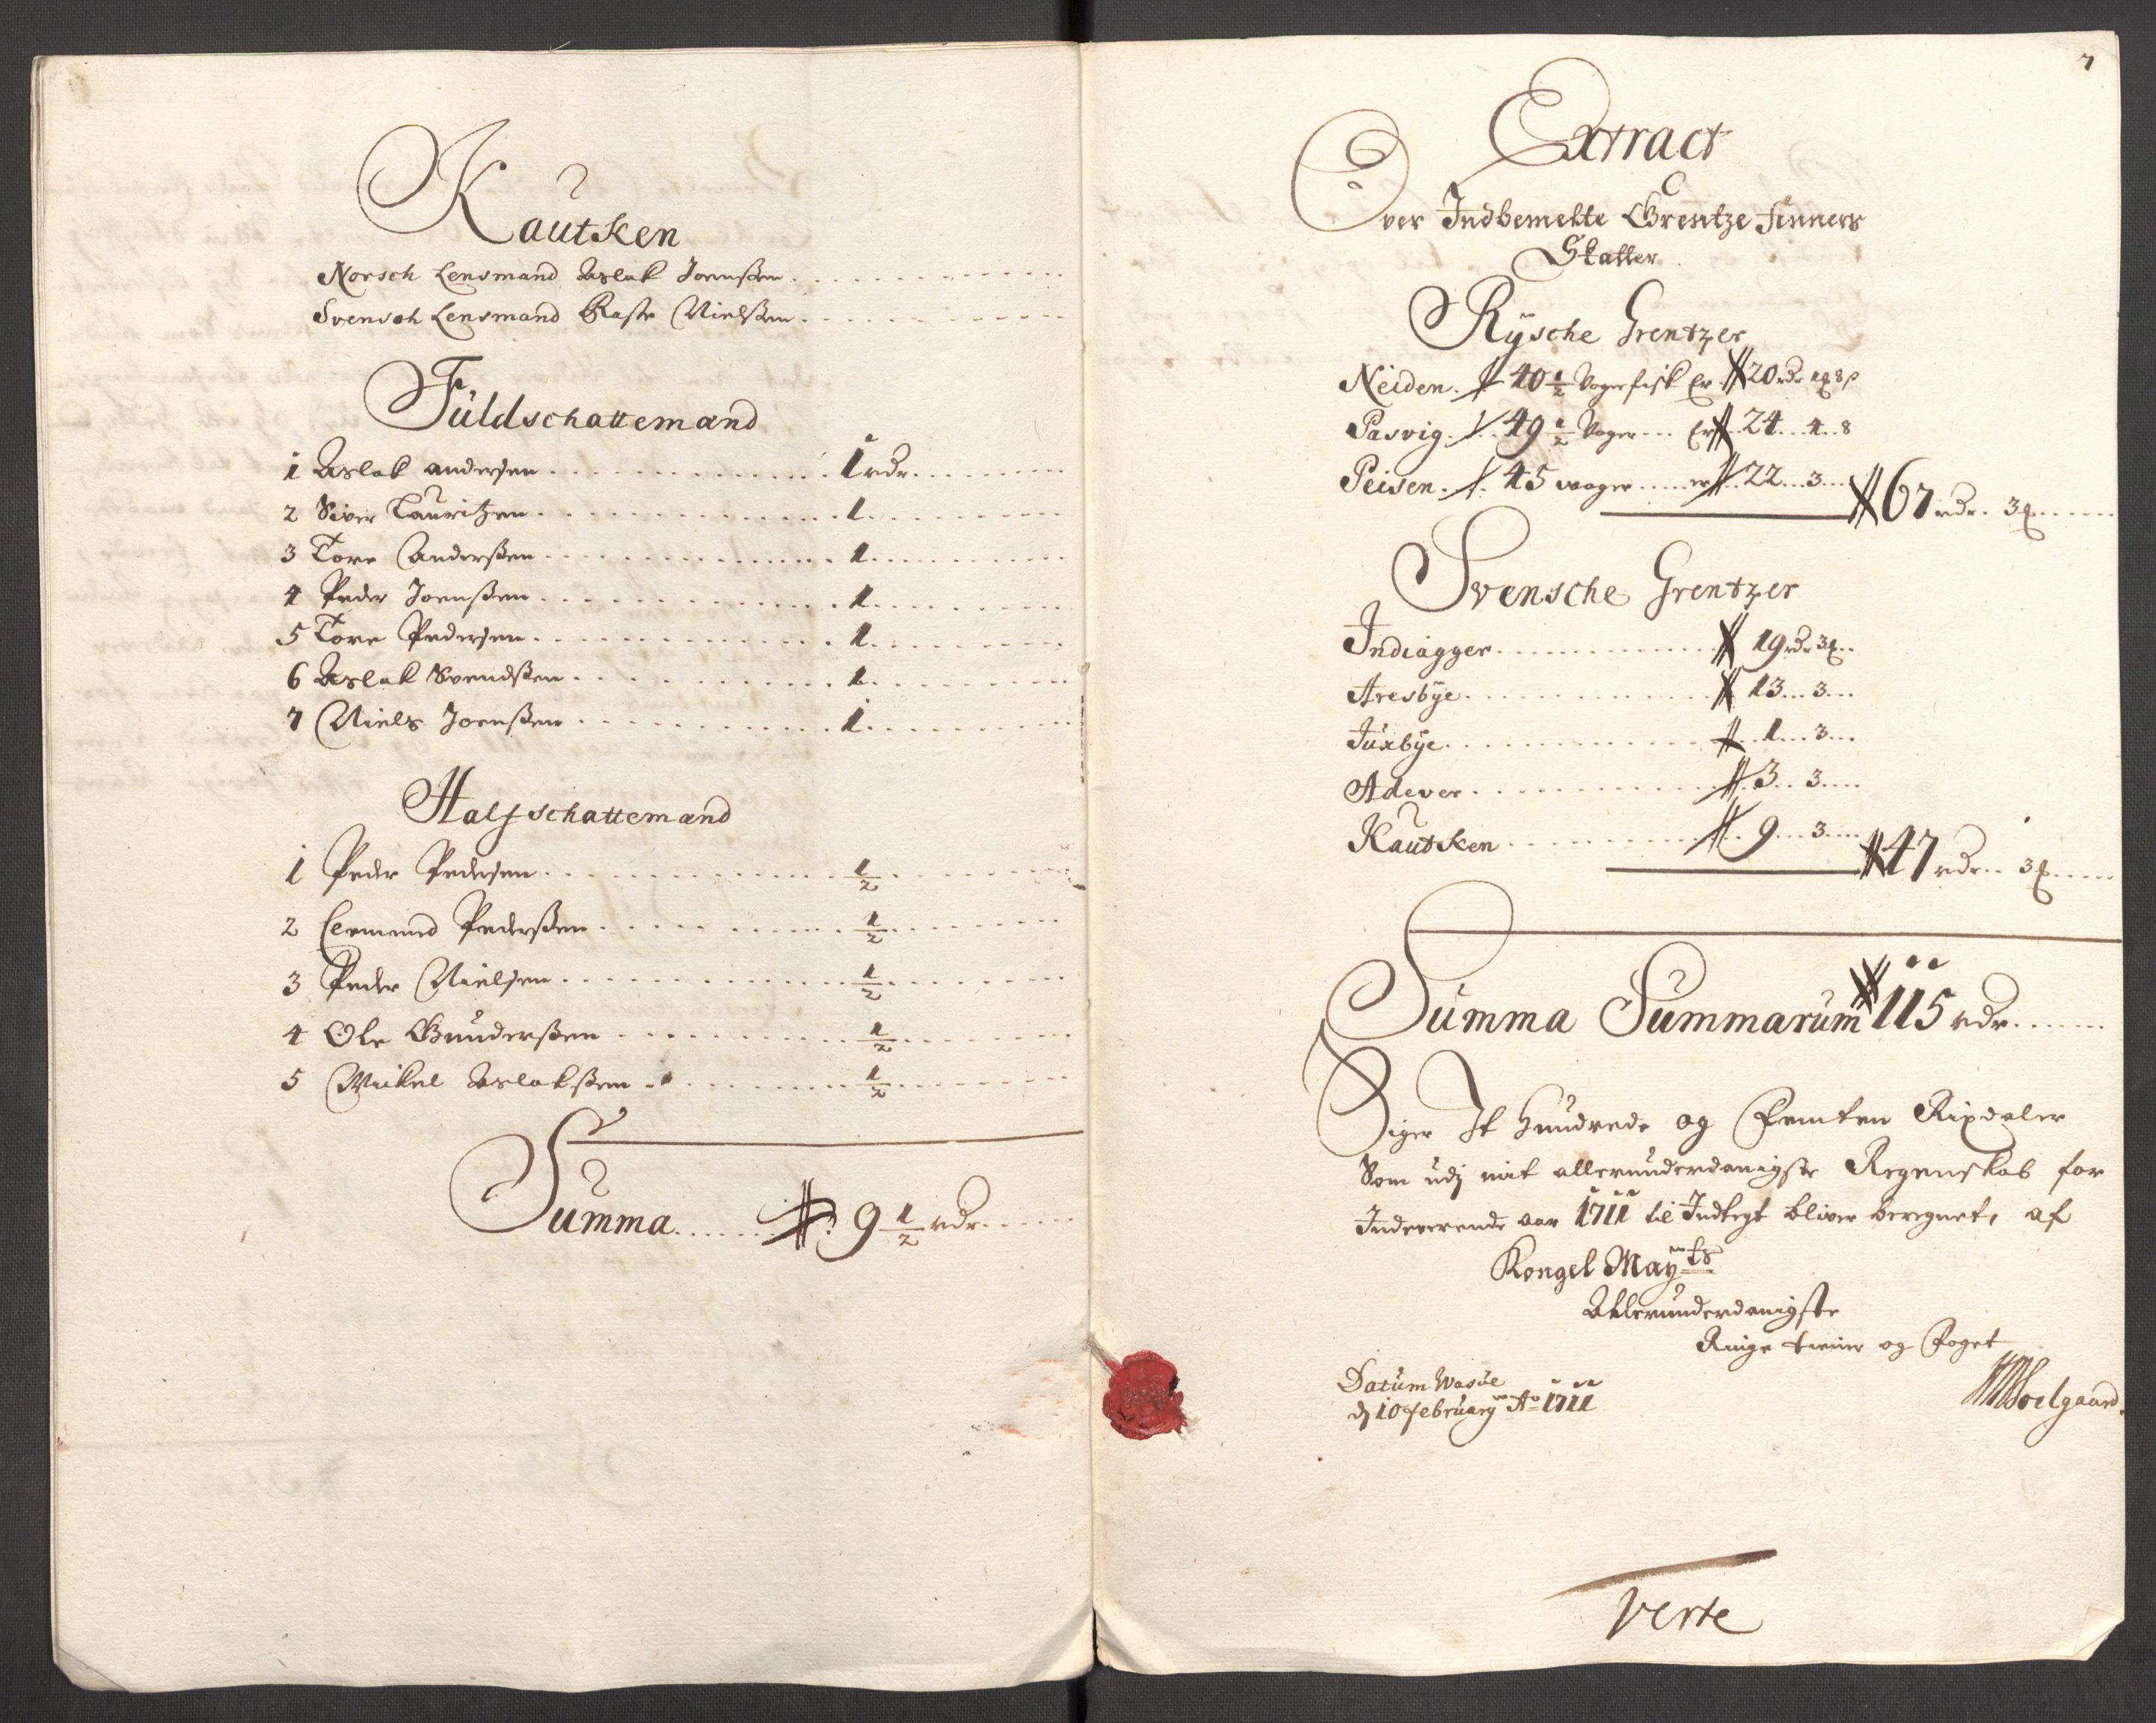 Kautken
Norsch Lensmand Aslak Joenßen
Svensch Lensmand Raste Nielßen
Füldschattemænd
1 Aslak andersen 1 rdr
2 Siver Lauritzen 1
3 Tore Anderßen 1
4 Peder Joenßen 1
5 Tore Pedersen 1
6 Aslak Svendßen 1
7 Niels Joenßen 1
Halfschattemænd
1 Peder Pedersen 1/2
2 Clemmend Pederßen 1/2
3 Peder Nielsen 1/2
4 Ole Gunderßen 1/2
5 Mickel Aslakßen 1/2
Summa 9 1/2 rdr
7
Extract
Over Indbemelte Grentze Finners
Skatter
Rÿsche Grentzer
Neiden 40 1/2 Voger fisk Er 20 rdr 1 8
Pasvig 49 1/2 Voger Er 24 4 8
Peisen 45 voger er 22 3
67 rdr 3
Svensche Grentzer
Indiagger 19 rdr 3
Aresbÿe 13 3
Juxbÿe 1 3
Adever 3 3
Kautken 9 3
47 rdr 3
Summa Summarum 115 rdr
Siger It Hundrede og Femten Rixdaler
Som udj mit allerunderdanigste Regenskab for
Indeverende aar 1711 til Indtegt bliver beregnet, af
Kongel May ts
Allerunderdanigste
Ringe tiener og Foget
Datum Wasöe
dj 10 februarÿ Ao 1711
Soelgaard
verte